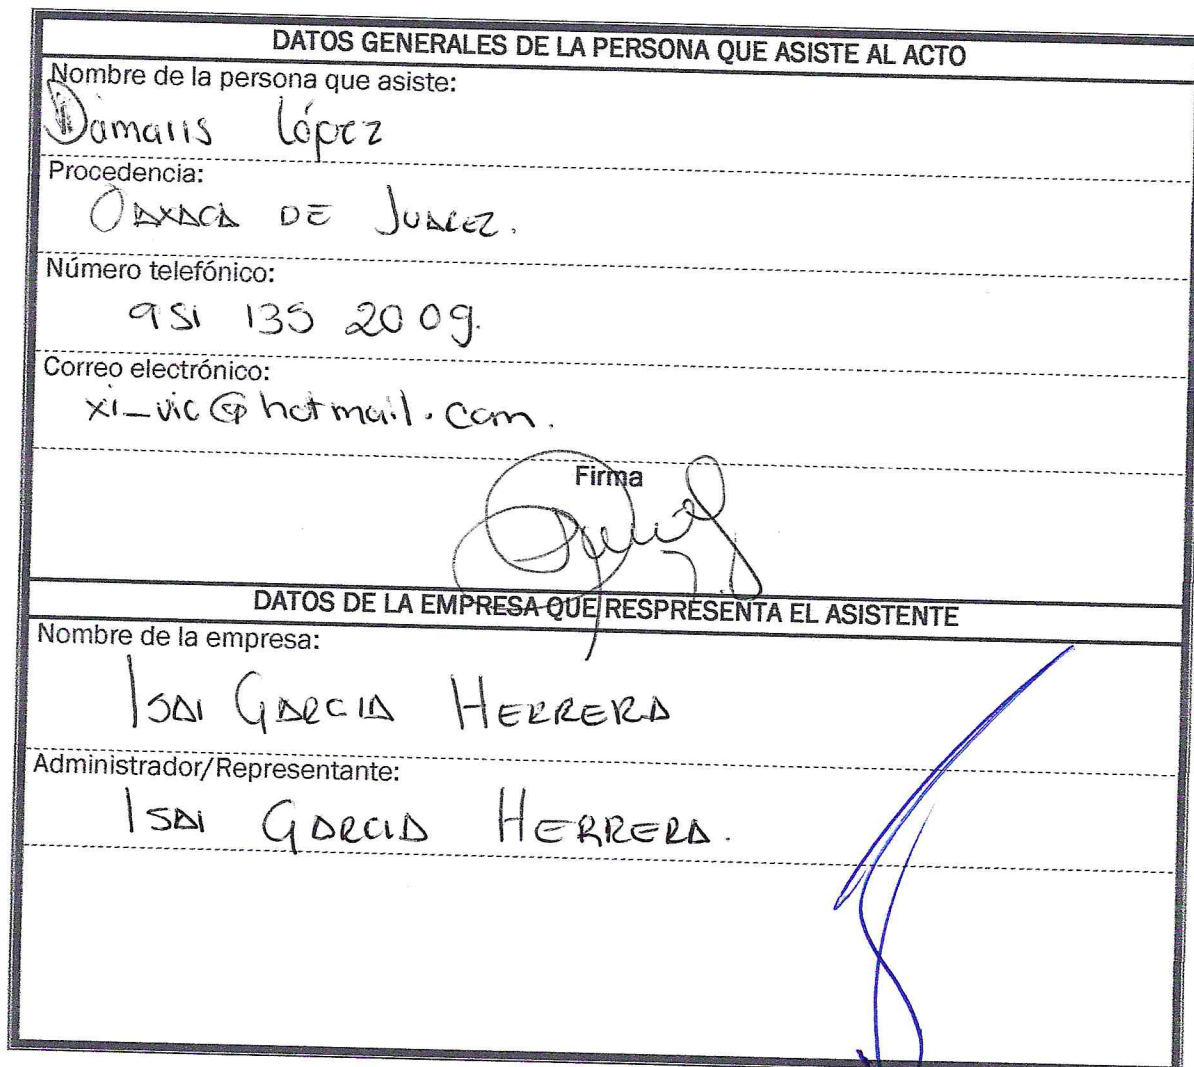 DATOS GENERALES DE LA PERSONA QUE ASISTE AL ACTO
Nombre de la persona que asiste:
Damaris López
Procedencia:
OAXACA DE JUAREZ.
Número telefónico:
951 135 2009.
Correo electrónico:
xi_vic@hotmail.com.
Firma
DATOS DE LA EMPRESA QUE RESPRESENTA EL ASISTENTE
Nombre de la empresa:
ISAI GARCIA HERRERA
Administrador/Representante:
ISAI GARCIA HERRERA.